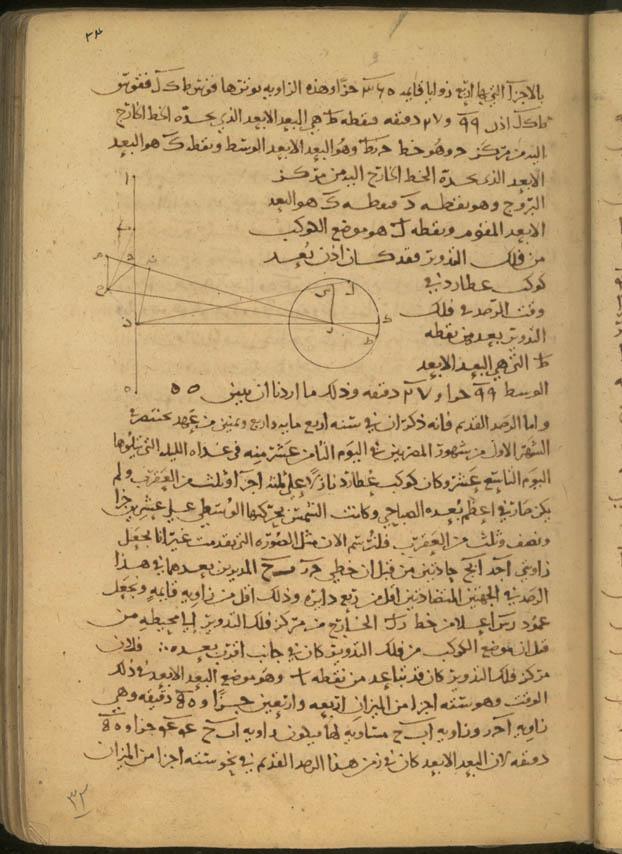 بالاجزآ التي بها اربع زوايا قايمه ٣٦٥ جزا وهذه الزاويه يوترها قوس ط ك ل فقوس
ط ك ل اذن ٩٩ و ٢٧ دقيقه فنقطه ط هي البعد الابعد الذي يحده الخط الخارج
اليه من مركز د وهو خط د ط وهو البعد الابعد الوسط ونقطه ك هو البعد
الابعد الذي يحده الخط الخارج اليه من مركز
البروج وهو نقطه د فنقطه ك هو البعد
الابعد المقوم ونقطه ل هو موضع الكوكب
من فلك التدوير فقد كان اذن بعد
كوكب عطارد في
وقت الرصد في فلك
التدوير بعد من نقطه
ط التي هي البعد الابعد
الوسط ٩٩ جزا و ٢٧ دقيقه وذلك ما اردنا ان نبين
واما الرصد القديم فانه ذكر ان في سنه اربع مايه واربع وثمنين من عهد بختنصر في
الشهر الاول من شهور المصريين في اليوم الثامن عشر منه في غداه الليله التي يتلوها
اليوم التاسع عشر وكان كوكب عطارد علي ثلثه اجزآ وثلث من العقرب ولم
يكن صار في اعظم بعده الصباحي وكانت الشمس بحركتها الوسطي علي عشرين جزا
ونصف وثلث من العقرب فلنرسم الان مثل الصوره التي تقدمت غير انا نجعل
زاويتي ا ح د ا ب ح حادتين من قبل ان خطي ح د ب ح المديرين بعدهما في هذا
الرصد في الجهتين المتضادتين اقل من ربع دايره وذلك اقل من زاويه قايمه ونجعل
عمود ر س اعلا من خط ر ل الخارج من مركز فلك التدوير الي محيطه من
قبل ان موضع الكوكب من فلك التدوير كان في جانب اقرب بعده فلان
مركز فلك التدوير كان قد تباعد من نقطه ا وهو موضع البعد الابعد في ذلك
الوقت وهو سته اجزا من الميزان اربعه واربعين جزا و دقيقه وهي
زاويه ا ح د وزاويه ا ب ح مساويه لها فيكون زاويه ا ب ح جزا و
دقيقه لان البعد الابعد كان في زمن هذا الرصد القديم في نحو سته اجزا من الميزان
٣٢